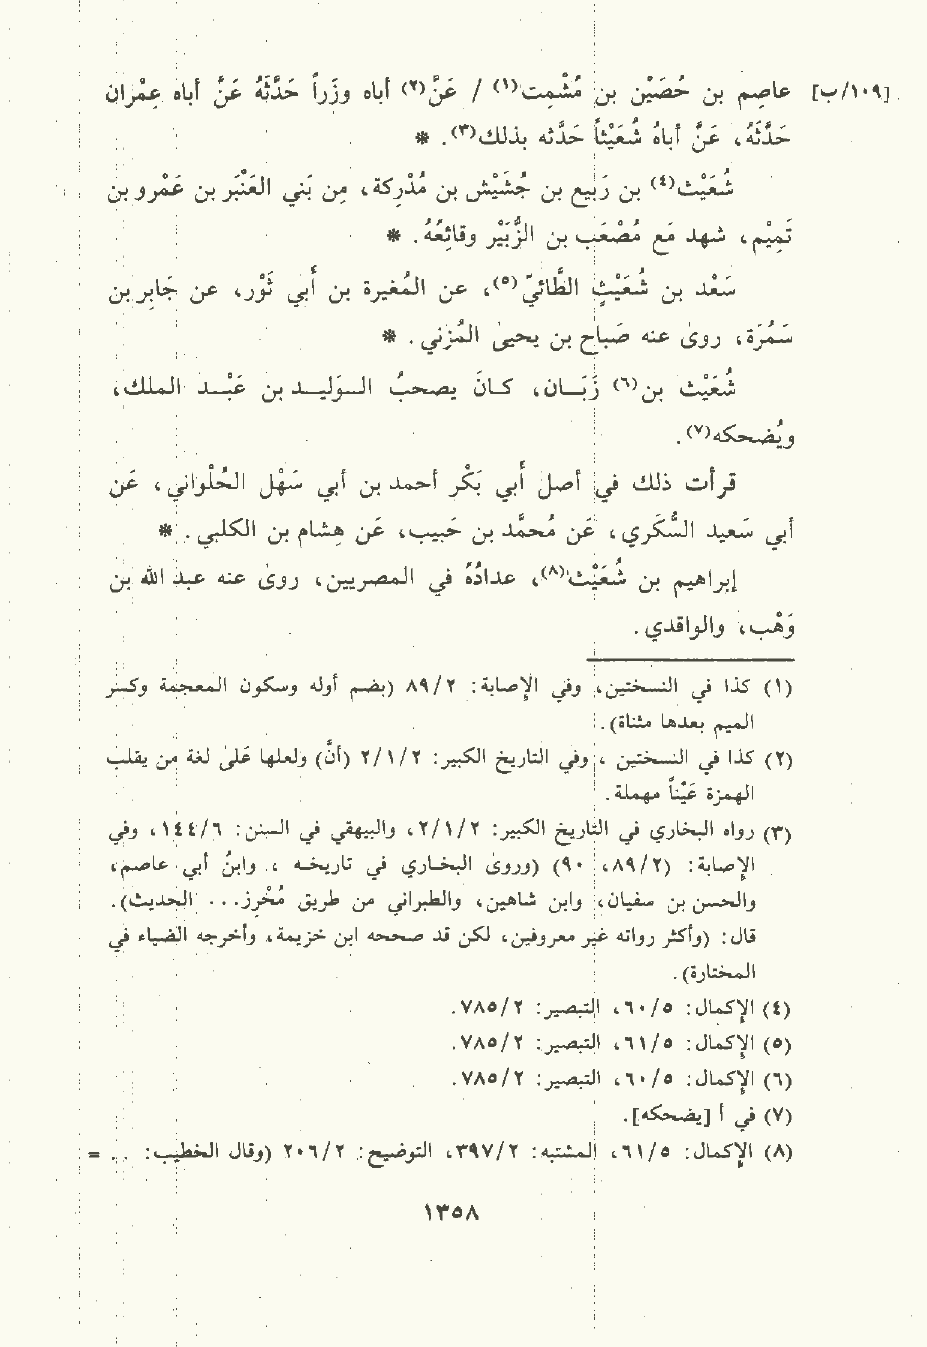 [١٠٩/ب] عاصِم بن حُصَيْن بن مُشْمِت(١) / عَنَّ(٢) أباه وزَراً حَدَّثَهُ عَنَّ أباه عِمْران
حَدَّثَهُ، عَنَّ أباهُ شُعَيْثاً حَدَّثه بذلك(٣). *
شُعَيْث(٤) بن رَبيع بن جُشَيْش بن مُدْرِكة، مِن بَني العَنْبَر بن عَمْرو بن
تَمِيْم، شهد مَعَ مُصْعَب بن الزُّبَيْر وقائِعَهُ. *
سَعْد بن شُعَيْثٍ الطَّائيّ(٥)، عن المُغيرة بن أبي ثَوْر، عن جَابِر بن
سَمُرَة، روىٰ عنه صَباح بن يحيىٰ المُزني. *
شُعَيْث بن(٦) زَبّــان، كــانَ يصحبُ الــوَليــد بن عَبْــد الملك،
ويُضحكه(٧).
قرأت ذلك في أصل أبي بَكْر أحمد بن أبي سَهْل الحُلْواني، عَن
أبي سَعيد السُّكَري، عَن مُحمَّد بن حَبيب، عَن هِشام بن الكلبي. *
إبراهيم بن شُعَيْث(٨)، عدادُهُ في المصريين، روىٰ عنه عبد الله بن
وَهْب، والواقدي.
(١) كذا في النسختين، وفي الإصابة: ٨٩/٢ (بضم أوله وسكون المعجمة وكسر
الميم بعدها مثناة).
(٢) كذا في النسختين، وفي التاريخ الكبير: ٢/١/٢ (أنَّ) ولعلها عَلىٰ لغة من يقلب
الهمزة عَيْناً مهملة.
(٣) رواه البخاري في التاريخ الكبير: ٢/١/٢، والبيهقي في السنن: ١٤٤/٦، وفي
الإصابة: (٨٩/٢، ٩٠) (وروىٰ البخاري في تاريخه، وابنُ أبي عاصم،
والحسن بن سفيان، وابن شاهين، والطبراني من طريق مُحْرِز... الحديث).
قال: (وأكثر رواته غير معروفين، لكن قد صححه ابن خزيمة، وأخرجه الضياء في
المختارة).
(٤) الإكمال: ٦٠/٥، التبصير: ٧٨٥/٢.
(٥) الإكمال: ٦١/٥، التبصير: ٧٨٥/٢.
(٦) الإكمال: ٦٠/٥، التبصير: ٧٨٥/٢.
(٧) في أ [يضحكه].
(٨) الإكمال: ٦١/٥، المشتبه: ٣٩٧/٢، التوضيح: ٢٠٦/٢ (وقال الخطيب: . . =
١٣٥٨